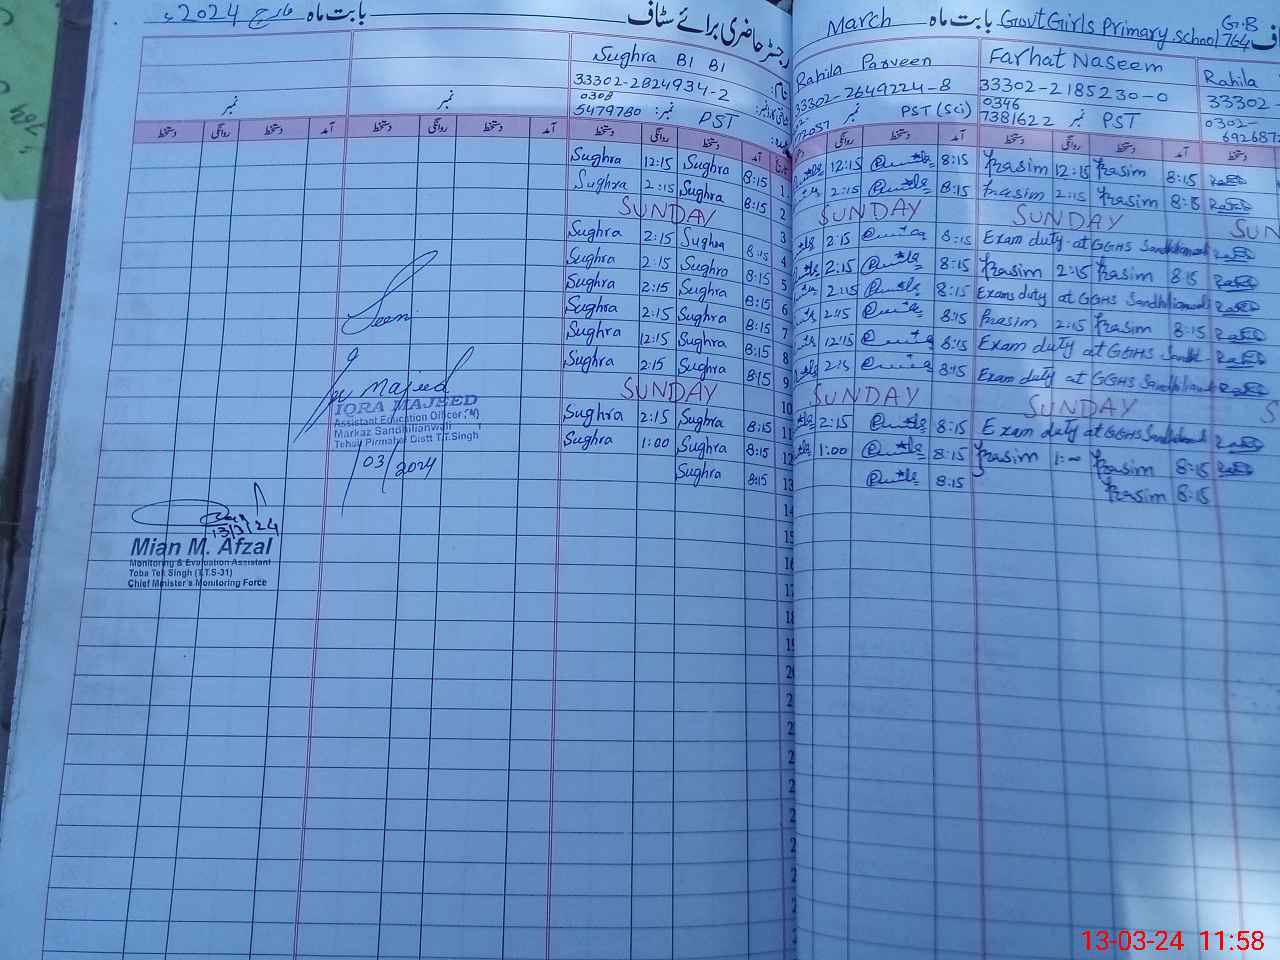 بابت ماہ مارچ 2024ء
رجسٹر حاضری برائے سٹاف
March بابت ماہ Govt Girls Primary School 764 G.B
Sughra BI BI
33302-2824934-2
0308
5479780 نمبر PST
نمبر
نمبر
دستخط روانگی دستخط آمد دستخط روانگی دستخط آمد دستخط روانگی دستخط آمد
Sughra 12:15 Sughra 8:15 1
Sughra 2:15 Sughra 8:15 2
SUNDAY 3
Sughra 2:15 Sughra 8:15 4
Sughra 2:15 Sughra 8:15 5
Sughra 2:15 Sughra 8:15 6
Sughra 2:15 Sughra 8:15 7
Sughra 12:15 Sughra 8:15 8
Sughra 2:15 Sughra 8:15 9
SUNDAY 10
Sughra 2:15 Sughra 8:15 11
Sughra 1:00 Sughra 8:15 12
Sughra 8:15 13
14
15
16
17
18
19
Seen
Majeed
IQRA MAJEED
Assistant Education Officer
Markaz Sandhilianwali
Tehsil Pirmahal Distt T.T.Singh
/03/2024
13/3/24
Mian M. Afzal
Monitoring & Evaluation Assistant
Toba Tek Singh (T.T.S-31)
Chief Minister's Monitoring Force
Rahila Parveen
33302-2649224-8
نمبر PST (Sci)
روانگی دستخط آمد
12:15 8:15
2:15 8:15
SUNDAY
2:15 8:15
2:15 8:15
2:15 8:15
2:15 8:15
12:15 8:15
2:15 8:15
SUNDAY
2:15 8:15
1:00 8:15
8:15
Farhat Naseem
33302-2185230-0
0346
7381622 نمبر PST
دستخط روانگی دستخط آمد
12:15 8:15
2:15 8:15
SUNDAY
Exam duty at GGHS Sandhilianwali
2:15 8:15
Exam duty at GGHS Sandhilianwali
2:15 8:15
Exam duty at GGHS Sandhi
Exam duty at GGHS Sandhilianwali
SUNDAY
Exam duty at GGHS Sandhilianwali
1:00 8:15
8:15
Rahila
33302-
0302-
692687
دستخط
SUN
S
13-03-24 11:58